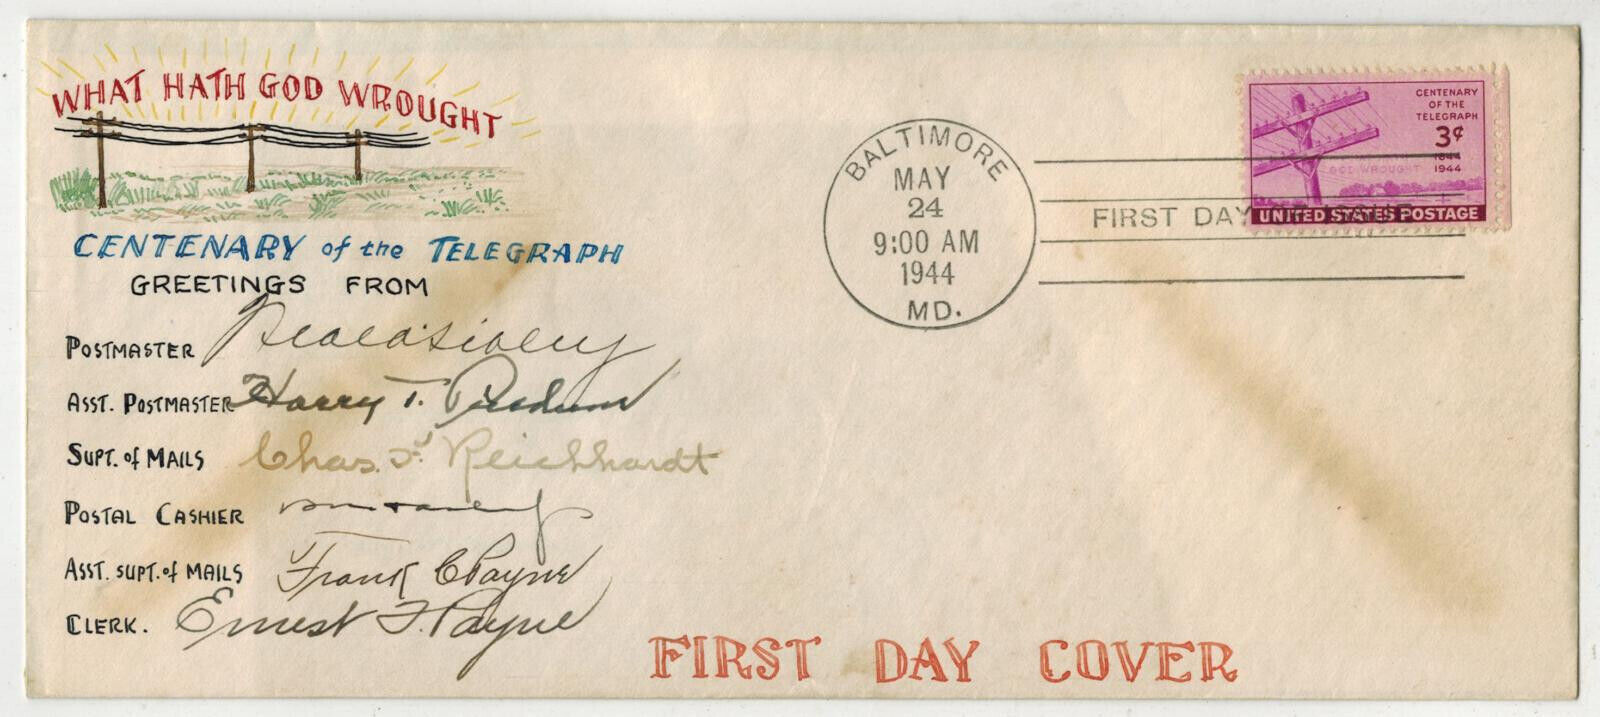 WHAT HATH GOD WROUGHT
CENTENARY of the TELEGRAPH
GREETINGS FROM
POSTMASTER
ASST. POSTMASTER Harry T.
SUPT. of MAILS Chas. F. Reichhardt
POSTAL CASHIER
ASST. SUPT. of MAILS Frank C Payne
CLERK. Ernest F. Payne
BALTIMORE
MAY
24
9:00 AM
1944
MD.
FIRST DAY OF ISSUE
CENTENARY
OF THE
TELEGRAPH
3¢
1844
1944
GOD WROUGHT
UNITED STATES POSTAGE
FIRST DAY COVER